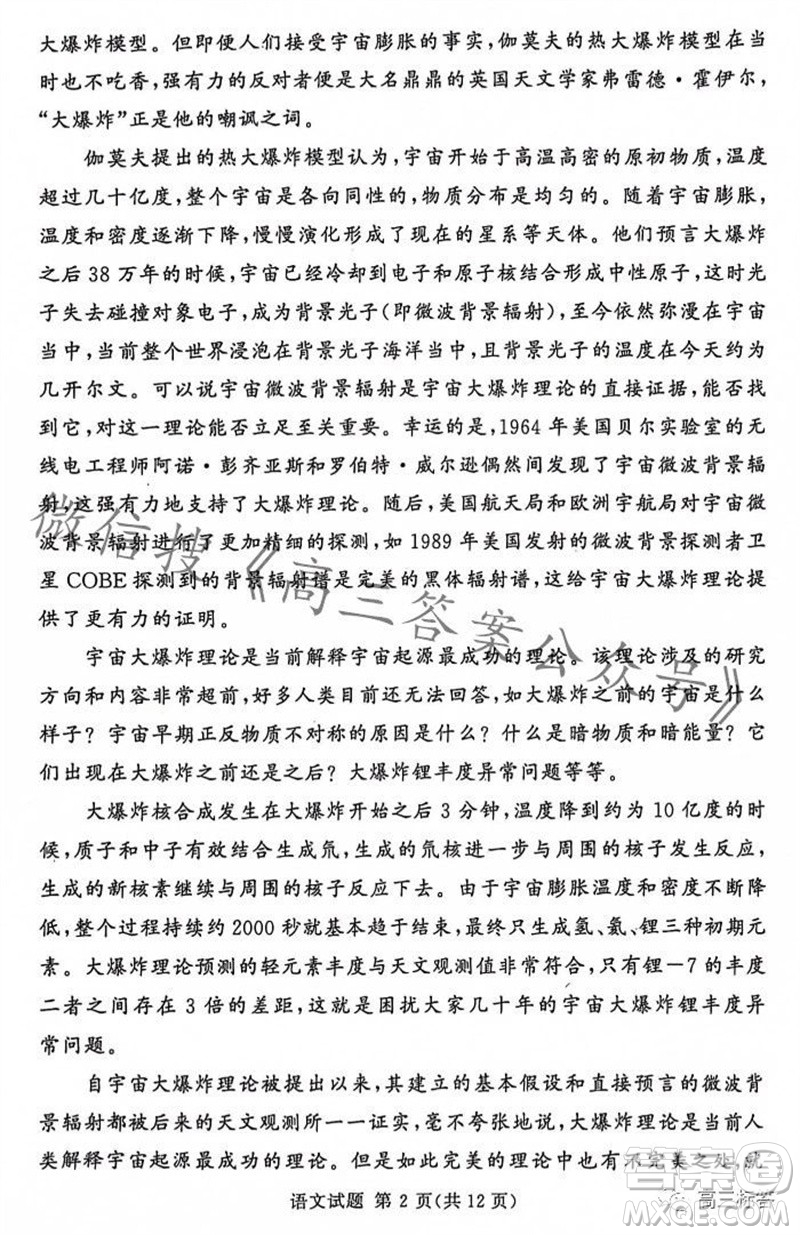 大爆炸模型。但即便人们接受宇宙膨胀的事实，伽莫夫的热大爆炸模型在当
时也不吃香，强有力的反对者便是大名鼎鼎的英国天文学家弗雷德·霍伊尔，
“大爆炸”正是他的嘲讽之词。
伽莫夫提出的热大爆炸模型认为，宇宙开始于高温高密的原初物质，温度
超过几十亿度，整个宇宙是各向同性的，物质分布是均匀的。随着宇宙膨胀，
温度和密度逐渐下降，慢慢演化形成了现在的星系等天体。他们预言大爆炸
之后 38 万年的时候，宇宙已经冷却到电子和原子核结合形成中性原子，这时光
子失去碰撞对象电子，成为背景光子（即微波背景辐射），至今依然弥漫在宇宙
当中，当前整个世界浸泡在背景光子海洋当中，且背景光子的温度在今天约为
几开尔文。可以说宇宙微波背景辐射是宇宙大爆炸理论的直接证据，能否找
到它，对这一理论能否立足至关重要。幸运的是，1964 年美国贝尔实验室的无
线电工程师阿诺·彭齐亚斯和罗伯特·威尔逊偶然间发现了宇宙微波背景辐
射，这强有力地支持了大爆炸理论。随后，美国航天局和欧洲宇航局对宇宙微
波背景辐射进行了更加精细的探测，如 1989 年美国发射的微波背景探测者卫
星 COBE 探测到的背景辐射谱是完美的黑体辐射谱，这给宇宙大爆炸理论提
供了更有力的证明。
宇宙大爆炸理论是当前解释宇宙起源最成功的理论。该理论涉及的研究
方向和内容非常超前，好多人类目前还无法回答，如大爆炸之前的宇宙是什么
样子？宇宙早期正反物质不对称的原因是什么？什么是暗物质和暗能量？它
们出现在大爆炸之前还是之后？大爆炸锂丰度异常问题等等。
大爆炸核合成发生在大爆炸开始之后 3 分钟，温度降到约为 10 亿度的时
候，质子和中子有效结合生成氘，生成的氘核进一步与周围的核子发生反应，
生成的新核素继续与周围的核子反应下去。由于宇宙膨胀温度和密度不断降
低，整个过程持续约 2000 秒就基本趋于结束，最终只生成氢、氦、锂三种初期元
素。大爆炸理论预测的轻元素丰度与天文观测值非常符合，只有锂－7 的丰度
二者之间存在 3 倍的差距，这就是困扰大家几十年的宇宙大爆炸锂丰度异
常问题。
自宇宙大爆炸理论被提出以来，其建立的基本假设和直接预言的微波背
景辐射都被后来的天文观测所一一证实，毫不夸张地说，大爆炸理论是当前人
类解释宇宙起源最成功的理论。但是如此完美的理论中也有不完美之处，就
语文试题 第 2 页(共 12 页)
微信搜《高三答案公众号》
高三标答
答案圈
MXQE.COM